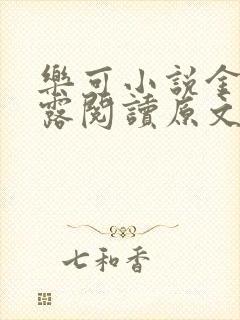 樂可小說金
露閱讀原文
七和香